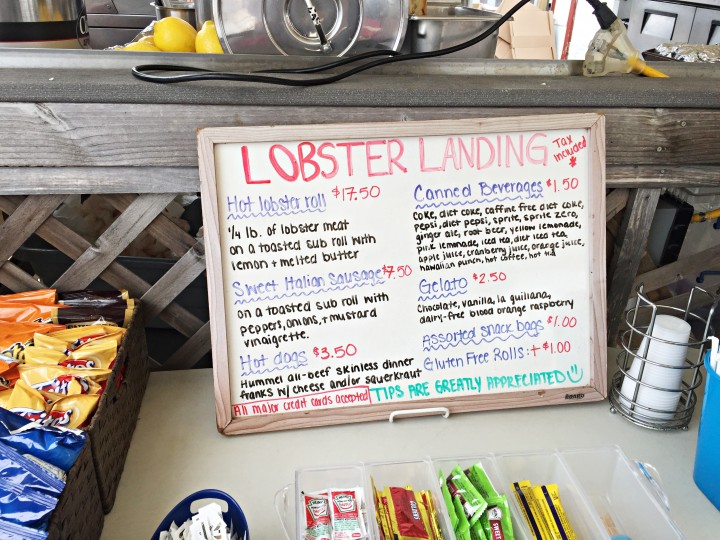 LOBSTER LANDING
Tax
included
*
Hot lobster roll $17.50
1/4 lb. of lobster meat
on a toasted sub roll with
lemon + melted butter
Sweet Italian Sausage $7.50
on a toasted sub roll with
peppers, onions, + mustard
vinaigrette.
Hot dogs $3.50
Hummel all-beef skinless dinner
franks w/ cheese and/or squerkraut
All major credit cards accepted
Canned Beverages $1.50
coke, diet coke, caffine free diet coke,
pepsi, diet pepsi, sprite, sprite zero,
ginger ale, root beer, yellow lemonade,
pink lemonade, iced tea, diet iced tea,
apple juice, cranberry juice, orange juice,
hawaiian punch, hot coffee, hot tea
Gelato $2.50
Chocolate, vanilla, la guiliana,
dairy-free blood orange raspberry
Assorted snack bags $1.00
Gluten Free Rolls: + $1.00
TIPS ARE GREATLY APPRECIATED
HEINZ
HEINZ